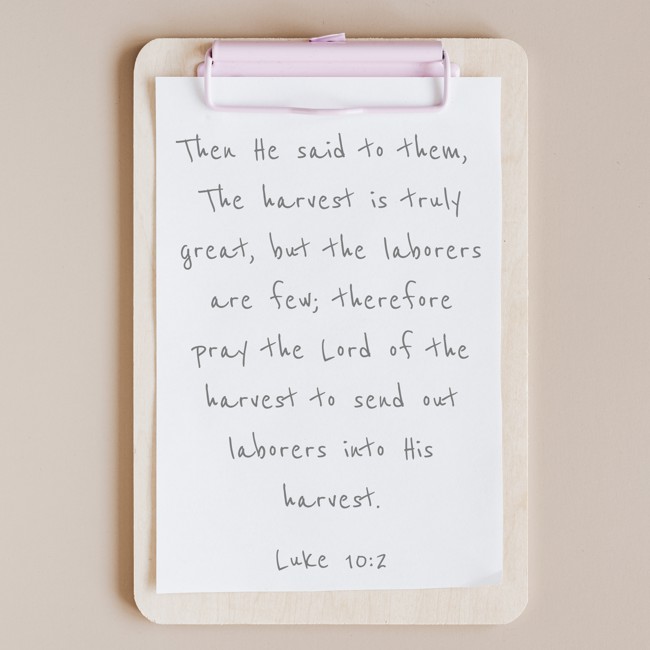 Then He said to them,
The harvest is truly
great, but the laborers
are few; therefore
pray the Lord of the
harvest to send out
laborers into His
harvest.
Luke 10:2